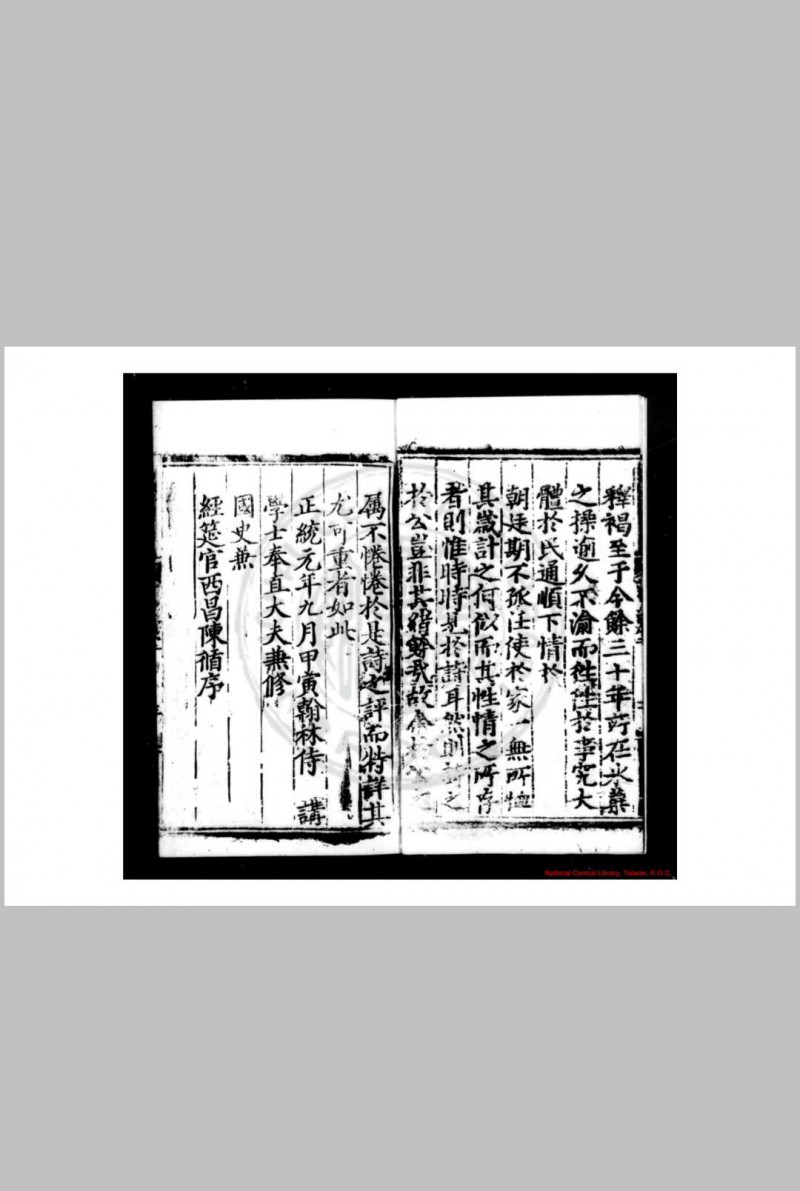 釋褐至于今餘三十年所在氷蘖
之操逾久不渝而徃徃於事究大
體於民通順下情於
朝廷期不孤任使於家一無所恤
其歲計之何似而其性情之所存
者則惟時時見於詩耳然則詩之
於公豈非其緒餘哉故為
屬不惓惓於是詩之評而特詳其
尤可重者如此
正統元年九月甲寅翰林侍 講
學士奉直大夫兼修
國史兼
經筵官西昌陳循序
National Central Library, Taiwan, R.O.C.